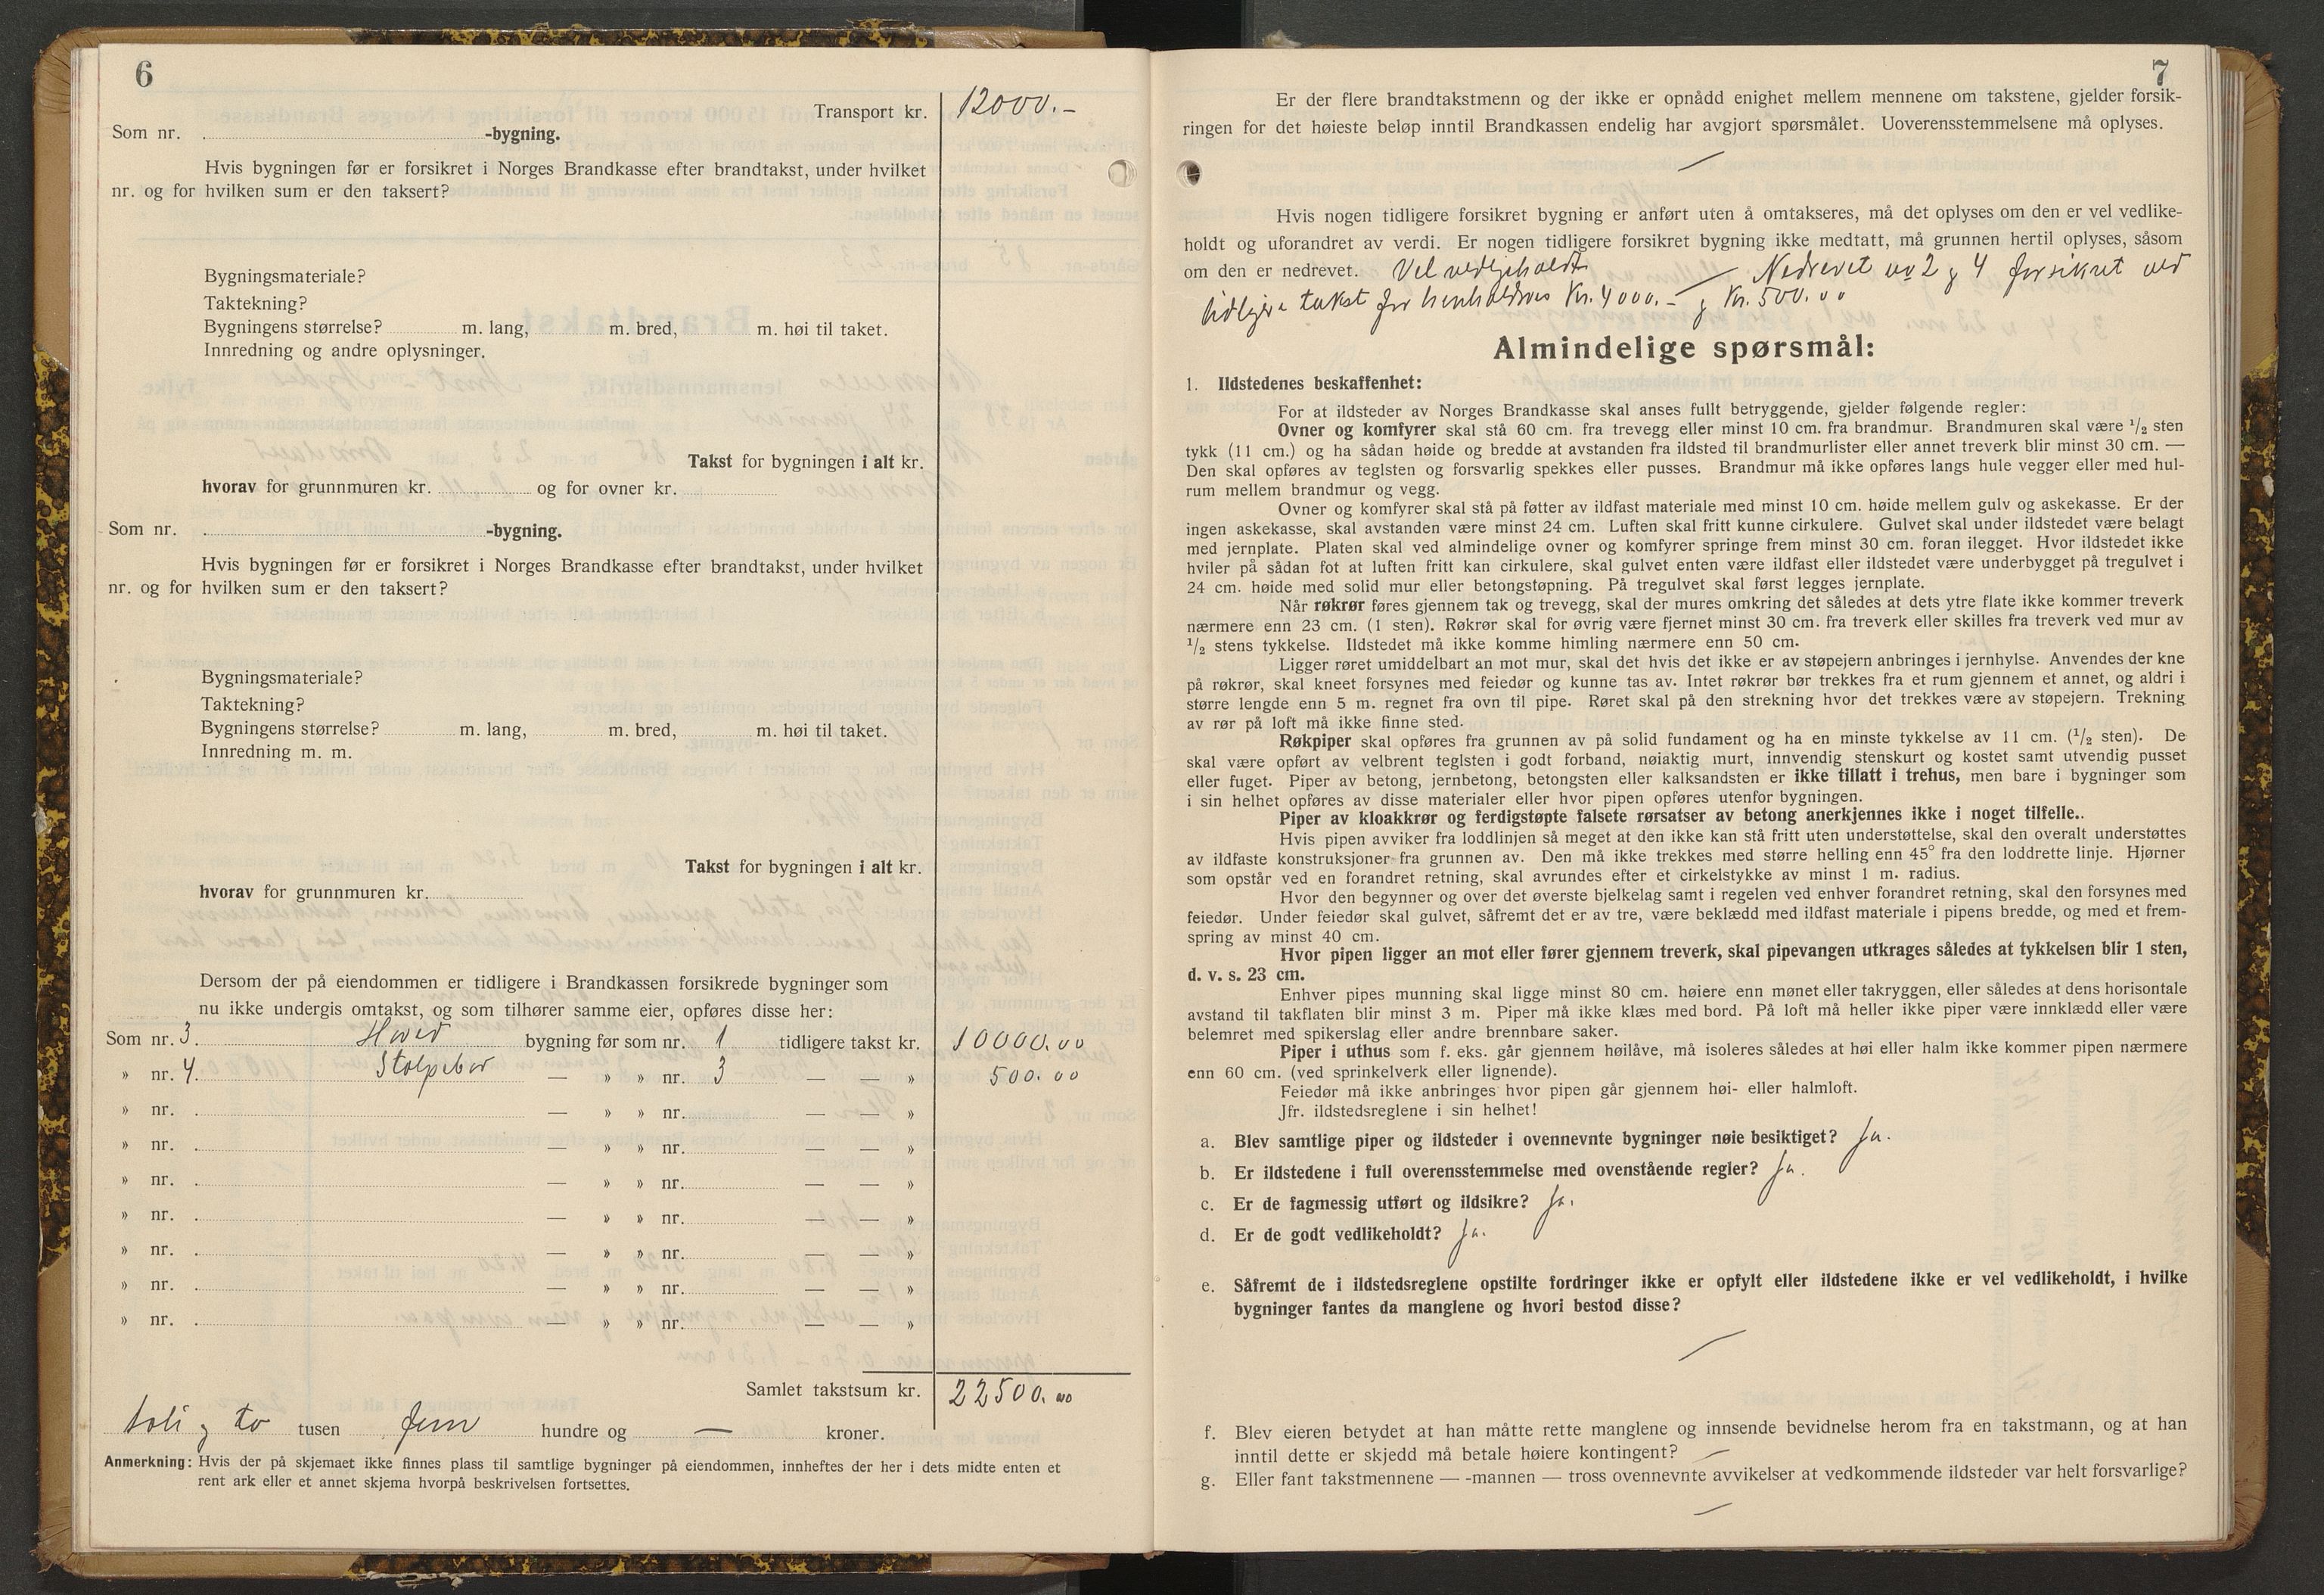 6
Transport kr. 12000.-
Som nr. -bygning.
Hvis bygningen før er forsikret i Norges Brandkasse efter brandtakst, under hvilket
nr. og for hvilken sum er den taksert?
Bygningsmateriale?
Taktekning?
Bygningens størrelse? m. lang, m. bred, m. høi til taket.
Innredning og andre oplysninger.
Takst for bygningen i alt kr.
hvorav for grunnmuren kr. og for ovner kr.
Som nr. -bygning.
Hvis bygningen før er forsikret i Norges Brandkasse efter brandtakst, under hvilket
nr. og for hvilken sum er den taksert?
Bygningsmateriale?
Taktekning?
Bygningens størrelse? m. lang, m. bred, m. høi til taket.
Innredning m. m.
Takst for bygningen i alt kr.
hvorav for grunnmuren kr.
Dersom der på eiendommen er tidligere i Brandkassen forsikrede bygninger som
nu ikke undergis omtakst, og som tilhører samme eier, opføres disse her:
Som nr. 3. bygning før som nr. 1 tidligere takst kr. 10000.00
» nr. 4. Stolpebod — » » nr. 3 — — » 500.00
» nr. — » » nr. — — »
» nr. — » » nr. — — »
» nr. — » » nr. — — »
» nr. — » » nr. — — »
» nr. — » » nr. — — »
» nr. — » » nr. — — »
» nr. — » » nr. — — »
Samlet takstsum kr. 22500.00
to tusen fem hundre og — kroner.
Anmerkning: Hvis der på skjemaet ikke finnes plass til samtlige bygninger på eiendommen, innheftes der her i dets midte enten et
rent ark eller et annet skjema hvorpå beskrivelsen fortsettes.
7
Er der flere brandtakstmenn og der ikke er opnådd enighet mellem mennene om takstene, gjelder forsik-
ringen for det høieste beløp inntil Brandkassen endelig har avgjort spørsmålet. Uoverensstemmelsene må oplyses.
—
Hvis nogen tidligere forsikret bygning er anført uten å omtakseres, må det oplyses om den er vel vedlike-
holdt og uforandret av verdi. Er nogen tidligere forsikret bygning ikke medtatt, må grunnen hertil oplyses, såsom
om den er nedrevet. Vel vedligeholdt — Nedrevet nr 2 og 4 forsikret ved
tidligere takst for henholdsvis Kr. 4000.- og Kr. 500.00
Almindelige spørsmål:
1. Ildstedenes beskaffenhet:
For at ildsteder av Norges Brandkasse skal anses fullt betryggende, gjelder følgende regler:
Ovner og komfyrer skal stå 60 cm. fra trevegg eller minst 10 cm. fra brandmur. Brandmuren skal være ½ sten
tykk (11 cm.) og ha sådan høide og bredde at avstanden fra ildsted til brandmurlister eller annet treverk blir minst 30 cm. —
Den skal opføres av teglsten og forsvarlig spekkes eller pusses. Brandmur må ikke opføres langs hule vegger eller med hul-
rum mellem brandmur og vegg.
Ovner og komfyrer skal stå på føtter av ildfast materiale med minst 10 cm. høide mellem gulv og askekasse. Er der
ingen askekasse, skal avstanden være minst 24 cm. Luften skal fritt kunne cirkulere. Gulvet skal under ildstedet være belagt
med jernplate. Platen skal ved almindelige ovner og komfyrer springe frem minst 30 cm. foran ilegget. Hvor ildstedet ikke
hviler på sådan fot at luften fritt kan cirkulere, skal gulvet enten være ildfast eller ildstedet være underbygget på tregulvet i
24 cm. høide med solid mur eller betongstøpning. På tregulvet skal først legges jernplate.
Når røkrør føres gjennem tak og trevegg, skal der mures omkring det således at dets ytre flate ikke kommer treverk
nærmere enn 23 cm. (1 sten). Røkrør skal for øvrig være fjernet minst 30 cm. fra treverk eller skilles fra treverk ved mur av
½ stens tykkelse. Ildstedet må ikke komme himling nærmere enn 50 cm.
Ligger røret umiddelbart an mot mur, skal det hvis det ikke er av støpejern anbringes i jernhylse. Anvendes der kne
på røkrør, skal kneet forsynes med feiedør og kunne tas av. Intet røkrør bør trekkes fra et rum gjennem et annet, og aldri i
større lengde enn 5 m. regnet fra ovn til pipe. Røret skal på den strekning hvor det trekkes være av støpejern. Trekning
av rør på loft må ikke finne sted.
Røkpiper skal opføres fra grunnen av på solid fundament og ha en minste tykkelse av 11 cm. (½ sten). De
skal være opført av velbrent teglsten i godt forband, nøiaktig murt, innvendig stenskurt og kostet samt utvendig pusset
eller fuget. Piper av betong, jernbetong, betongsten eller kalksandsten er ikke tillatt i trehus, men bare i bygninger som
i sin helhet opføres av disse materialer eller hvor pipen opføres utenfor bygningen.
Piper av kloakkrør og ferdigstøpte falsete rørsatser av betong anerkjennes ikke i noget tilfelle..
Hvis pipen avviker fra loddlinjen så meget at den ikke kan stå fritt uten understøttelse, skal den overalt understøttes
av ildfaste konstruksjoner fra grunnen av. Den må ikke trekkes med større helling enn 45° fra den loddrette linje. Hjørner
som opstår ved en forandret retning, skal avrundes efter et cirkelstykke av minst 1 m. radius.
Hvor den begynner og over det øverste bjelkelag samt i regelen ved enhver forandret retning, skal den forsynes med
feiedør. Under feiedør skal gulvet, såfremt det er av tre, være beklædd med ildfast materiale i pipens bredde, og med et frem-
spring av minst 40 cm.
Hvor pipen ligger an mot eller fører gjennem treverk, skal pipevangen utkrages således at tykkelsen blir 1 sten,
d. v. s. 23 cm.
Enhver pipes munning skal ligge minst 80 cm. høiere enn mønet eller takryggen, eller således at dens horisontale
avstand til takflaten blir minst 3 m. Piper må ikke klæs med bord. På loft må heller ikke piper være innklædd eller være
belemret med spikerslag eller andre brennbare saker.
Piper i uthus som f. eks. går gjennem høilåve, må isoleres således at høi eller halm ikke kommer pipen nærmere
enn 60 cm. (ved sprinkelverk eller lignende).
Feiedør må ikke anbringes hvor pipen går gjennem høi- eller halmloft.
Jfr. ildstedsreglene i sin helhet!
a. Blev samtlige piper og ildsteder i ovennevnte bygninger nøie besiktiget? Ja.
b. Er ildstedene i full overensstemmelse med ovenstående regler? Ja.
c. Er de fagmessig utført og ildsikre? Ja.
d. Er de godt vedlikeholdt? Ja.
e. Såfremt de i ildstedsreglene opstilte fordringer ikke er opfylt eller ildstedene ikke er vel vedlikeholdt, i hvilke
bygninger fantes da manglene og hvori bestod disse?
—
f. Blev eieren betydet at han måtte rette manglene og innsende bevidnelse herom fra en takstmann, og at han
inntil dette er skjedd må betale høiere kontingent? —
g. Eller fant takstmennene — -mannen — tross ovennevnte avvikelser at vedkommende ildsteder var helt forsvarlige?
—